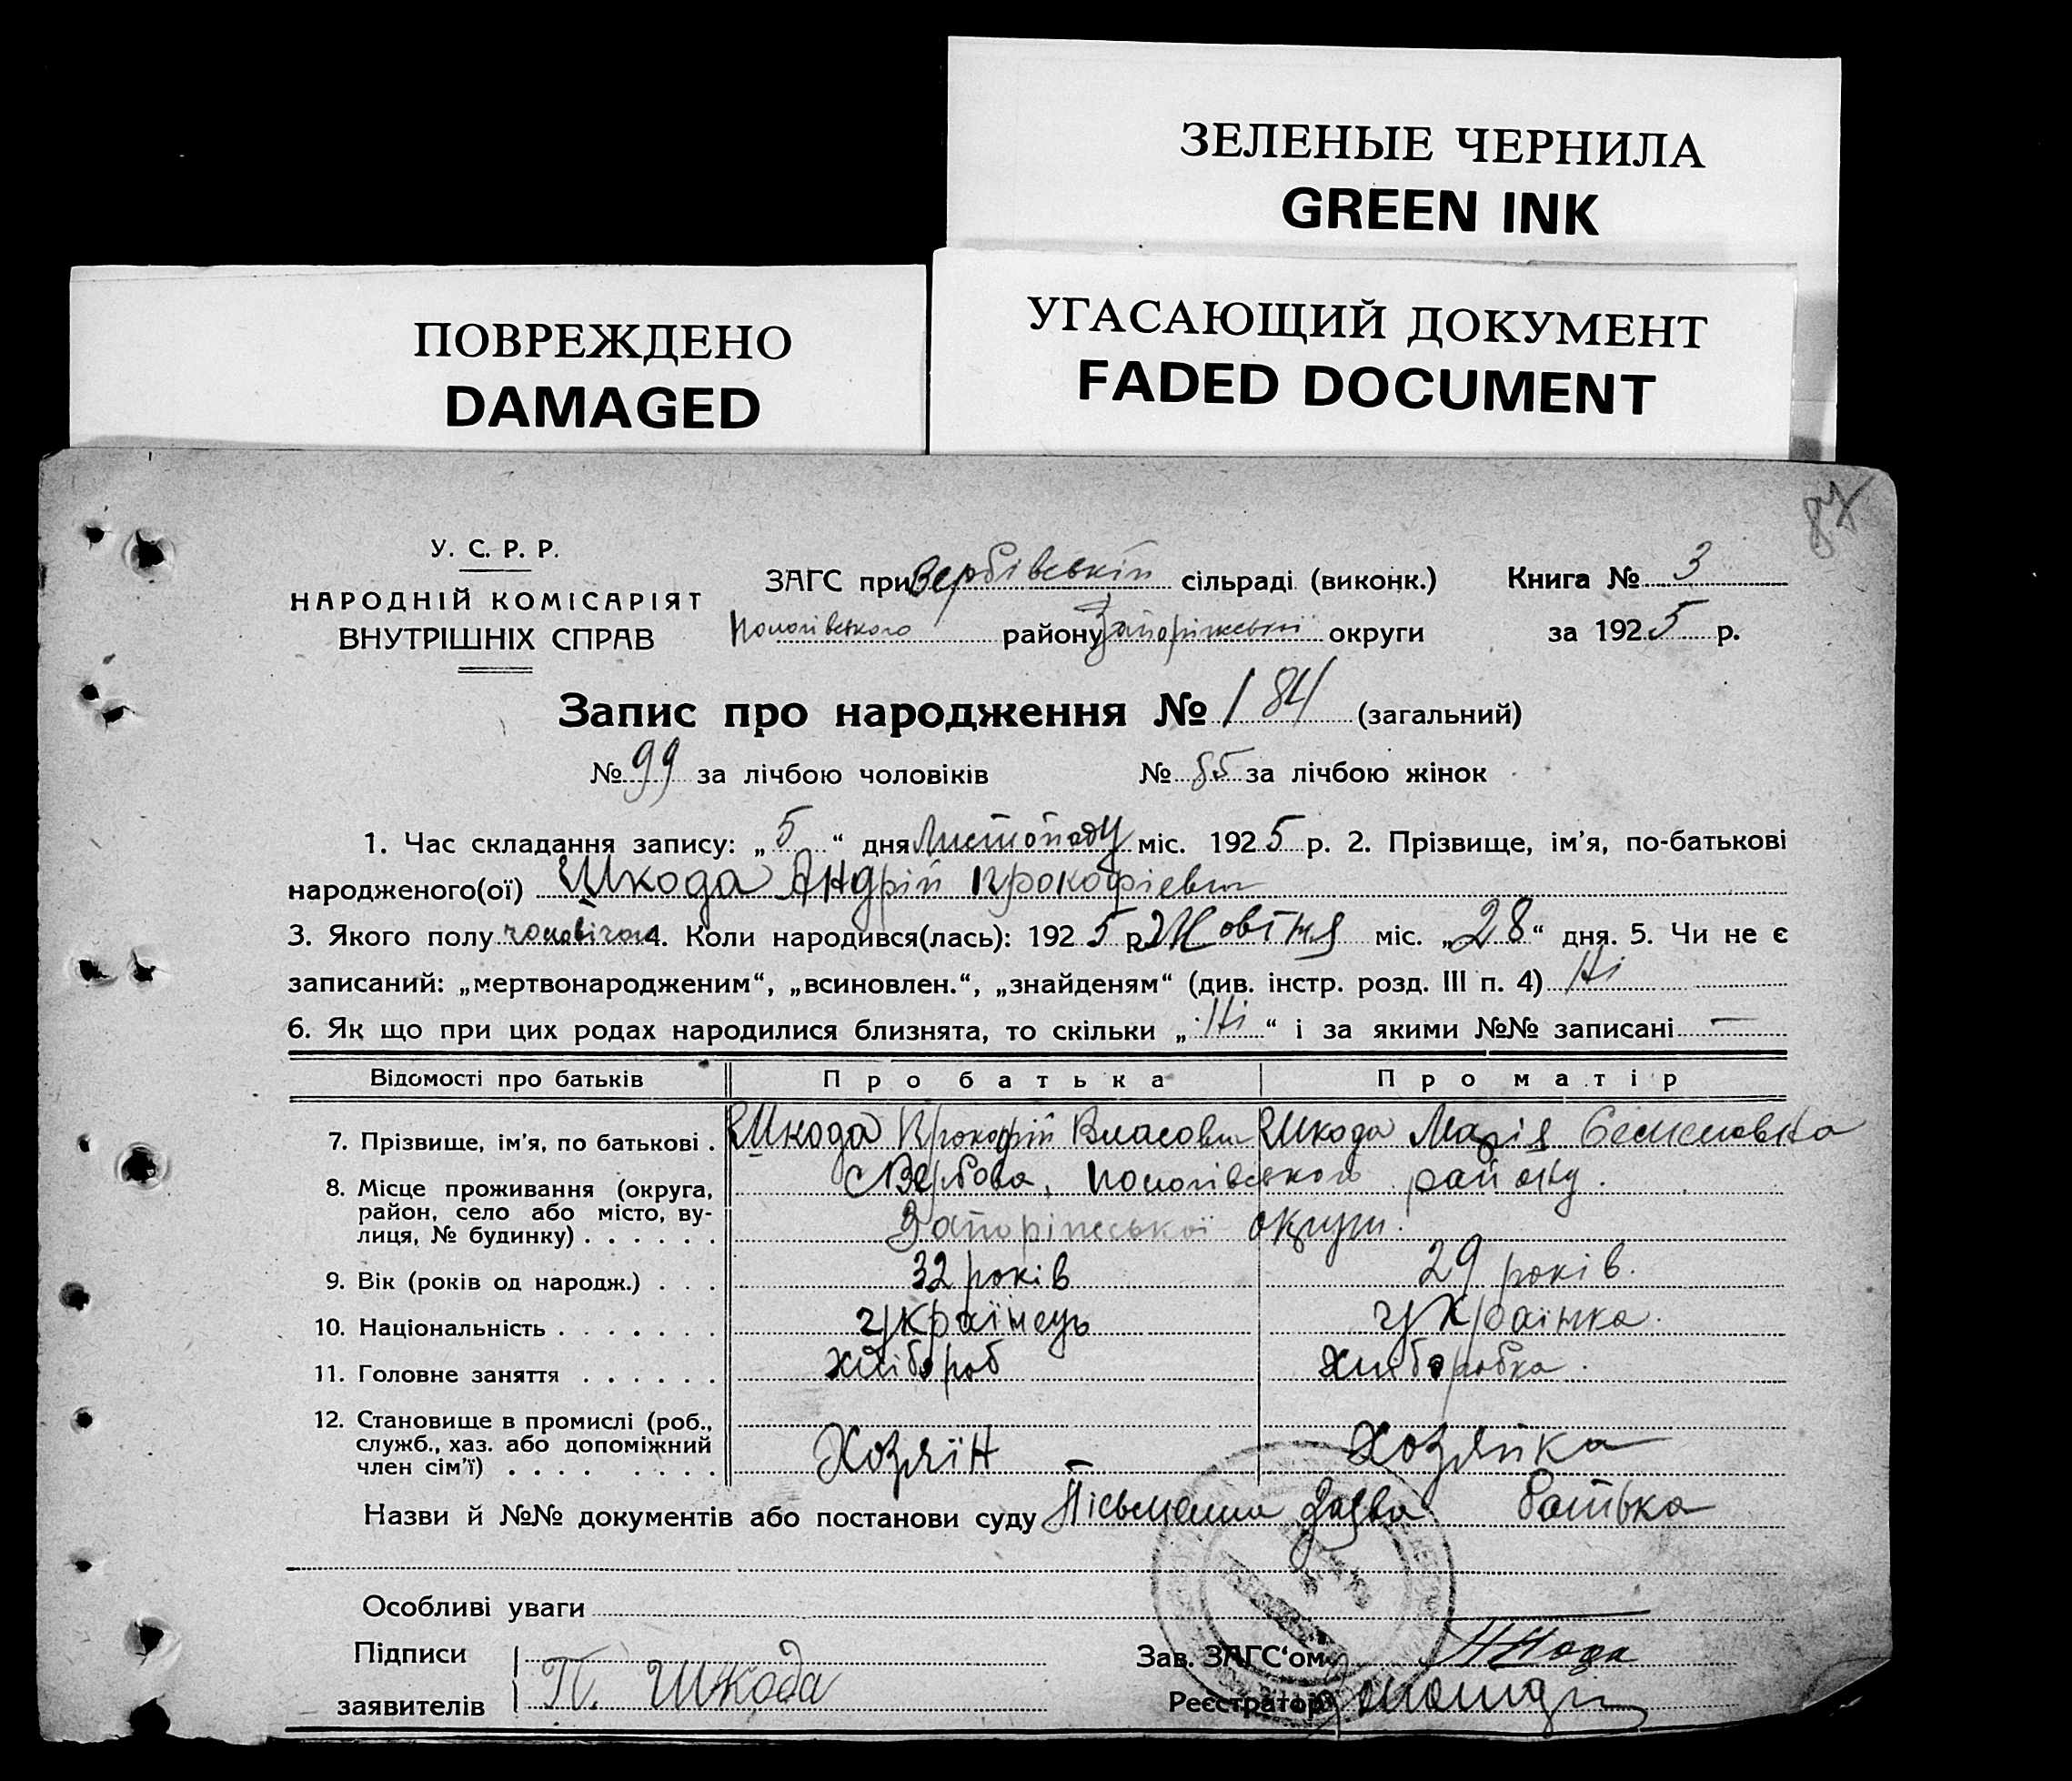 ЗЕЛЕНЫЕ ЧЕРНИЛА
GREEN INK
УГАСАЮЩИЙ ДОКУМЕНТ
FADED DOCUMENT
ПОВРЕЖДЕНО
DAMAGED
87
У. С. Р. Р.
НАРОДНІЙ КОМІСАРІЯТ
ВНУТРІШНІХ СПРАВ
ЗАГС при Вербівській сільраді (виконк.) Книга № 3
Пологівського району Запоріжської округи за 1925 р.
Запис про народження № 184 (загальний)
№ 99 за лічбою чоловіків № 85 за лічбою жінок
1. Час складання запису: „5“ дня Листопаду міс. 1925 р. 2. Прізвище, ім’я, по-батькові
народженого(ої) Шкода Андрій Прокофієвич
3. Якого полу 4. Коли народився(лась): 1925 р. Жовтня міс. „28“ дня. 5. Чи не є
записаний: „мертвонародженим“, „всиновлен.“, „знайденям“ (див. інстр. розд. III п. 4) Ні
6. Як що при цих родах народилися близнята, то скільки „Ні“ і за якими №№ записані —
Відомості про батьків Про батька Про матір
7. Прізвище, ім’я, по батькові . Шкода Прокофій Власович Шкода Марія Семеновна
8. Місце проживання (округа, с Вербова, Пологівського району.
район, село або місто, ву-
лиця, № будинку) . . . . . . Запоріжської округи.
9. Вік (років од народж.) . . . 32 років 29 років.
10. Національність . . . . . . . українець українка.
11. Головне заняття . . . . . . хлібороб хліборобка.
12. Становище в промислі (роб.,
служб., хаз. або допоміжний Хозяїн Хозяйка
член сім’ї) . . . . . . . .
Назви й №№ документів або постанови суду Пісьменна заява батька
Особливі уваги
Підписи Зав. ЗАГС‘ом
заявителів П. Шкода Реєстратор